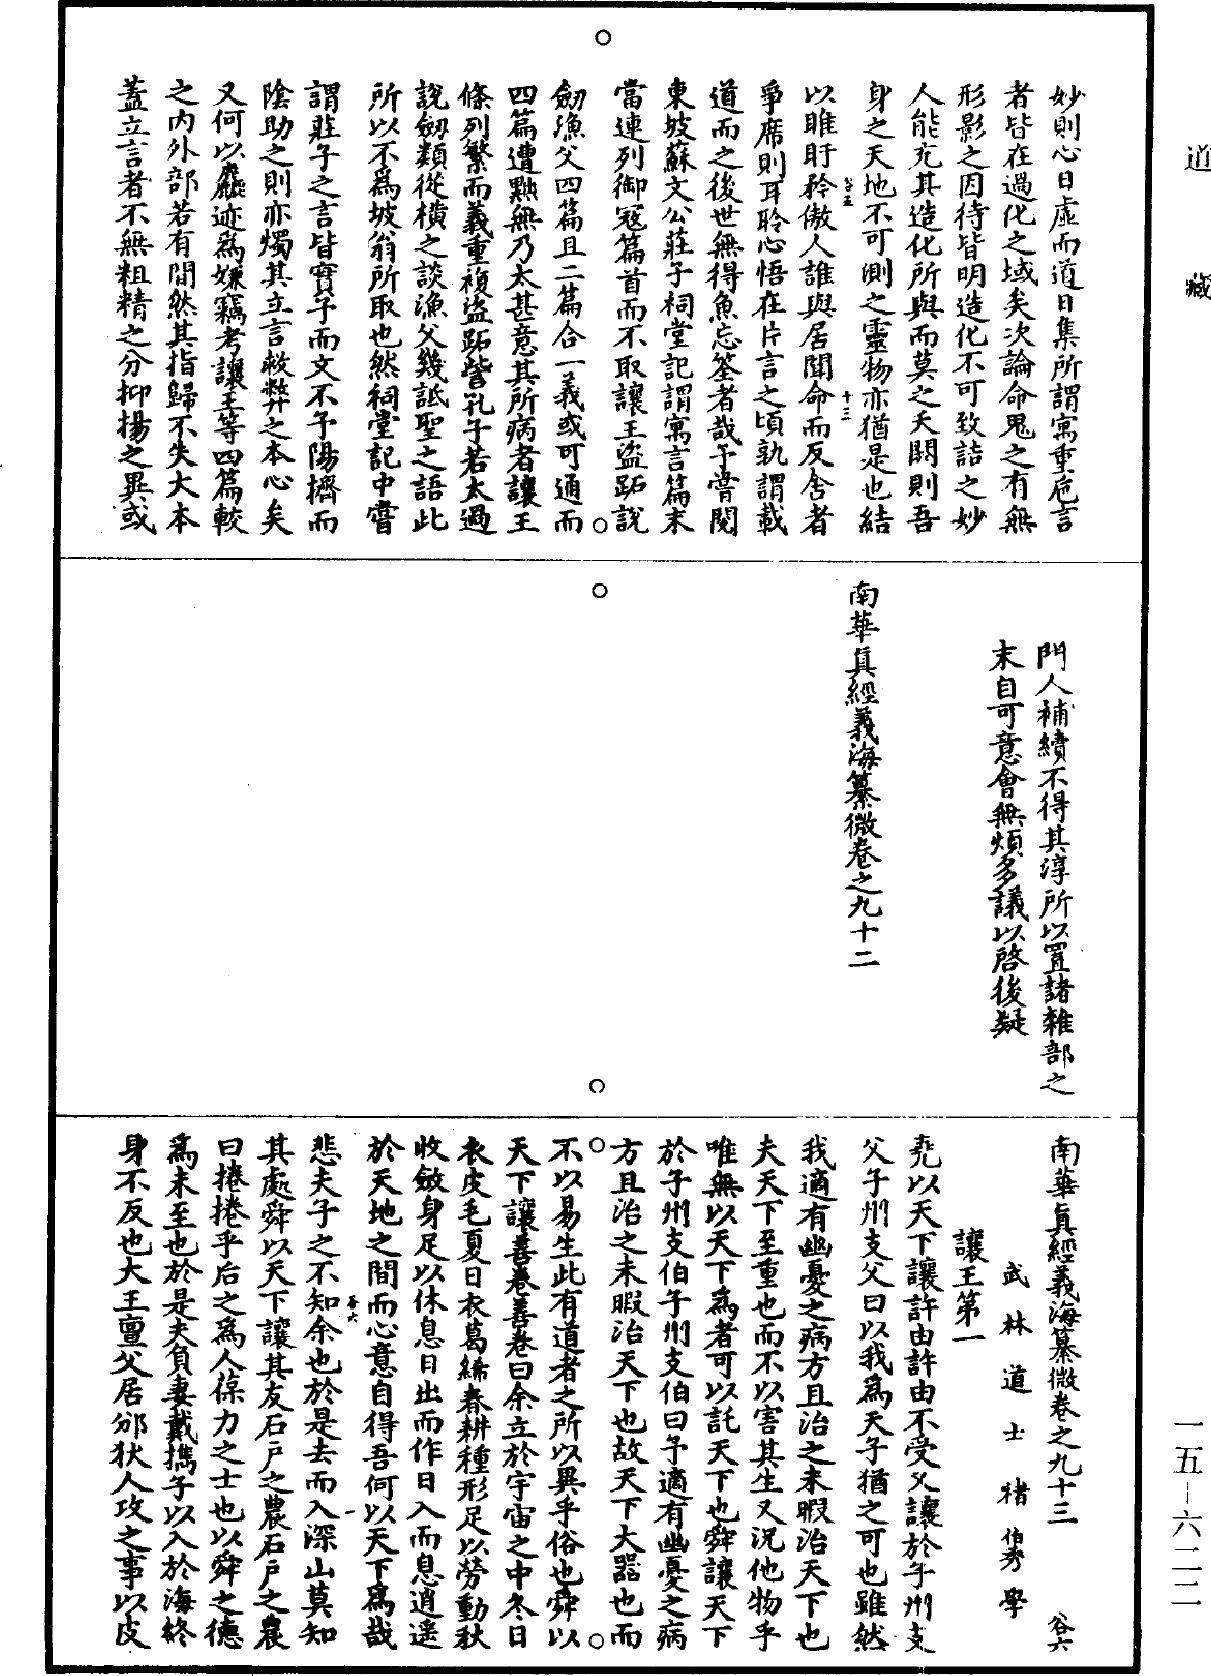 道藏
妙則心日虛而道日集所謂寓重巵言
者皆在過化之域矣次論命鬼之有無
形影之因待皆明造化不可致詰之妙
人能充其造化所與而莫之夭閼則吾
身之天地不可測之靈物亦猶是也結
谷五
十三
以睢盱矜傲人誰與居聞命而反舍者
爭席則耳聆心悟在片言之頃孰謂載
道而之後世無得魚忘筌者哉予嘗閱
東坡蘇文公莊子祠堂記謂寓言篇末
當連列御寇篇首而不取讓王盜跖說
劒漁父四篇且二篇合一義或可通而
四篇遭黜無乃太甚意其所病者讓王
條列繁而義重複盜跖訾孔子若太過
說劒類從橫之談漁父幾詆聖之語此
所以不為坡翁所取也然祠堂記中嘗
謂莊子之言皆實予而文不予陽擠而
陰助之則亦燭其立言救弊之本心矣
又何以麤迹為嫌竊考讓王等四篇較
之內外部若有間然其指歸不失大本
蓋立言者不無粗精之分抑揚之異或
門人補續不得其淳所以置諸雜部之
末自可意會無煩多議以啓後疑
南華眞經義海纂微卷之九十二
南華眞經義海纂微卷之九十三
谷六
武林道士褚伯秀學
讓王第一
堯以天下讓許由許由不受又讓於子州支
父子州支父曰以我為天子猶之可也雖然
我適有幽憂之病方且治之未暇治天下也
夫天下至重也而不以害其生又況他物乎
唯無以天下為者可以託天下也舜讓天下
於子州支伯子州支伯曰予適有幽憂之病
方且治之未暇治天下也故天下大器也而
不以易生此有道者之所以異乎俗也舜以
天下讓善卷善卷曰余立於宇宙之中冬日
衣皮毛夏日衣葛絺春耕種形足以勞動秋
收斂身足以休息日出而作日入而息逍遙
於天地之間而心意自得吾何以天下為哉
谷六
一
悲夫子之不知余也於是去而入深山莫知
其處舜以天下讓其友石戶之農石戶之農
曰捲捲乎后之為人葆力之士也以舜之德
為未至也於是夫負妻戴攜子以入於海終
身不反也大王亶父居邠狄人攻之事以皮
一五—六二二